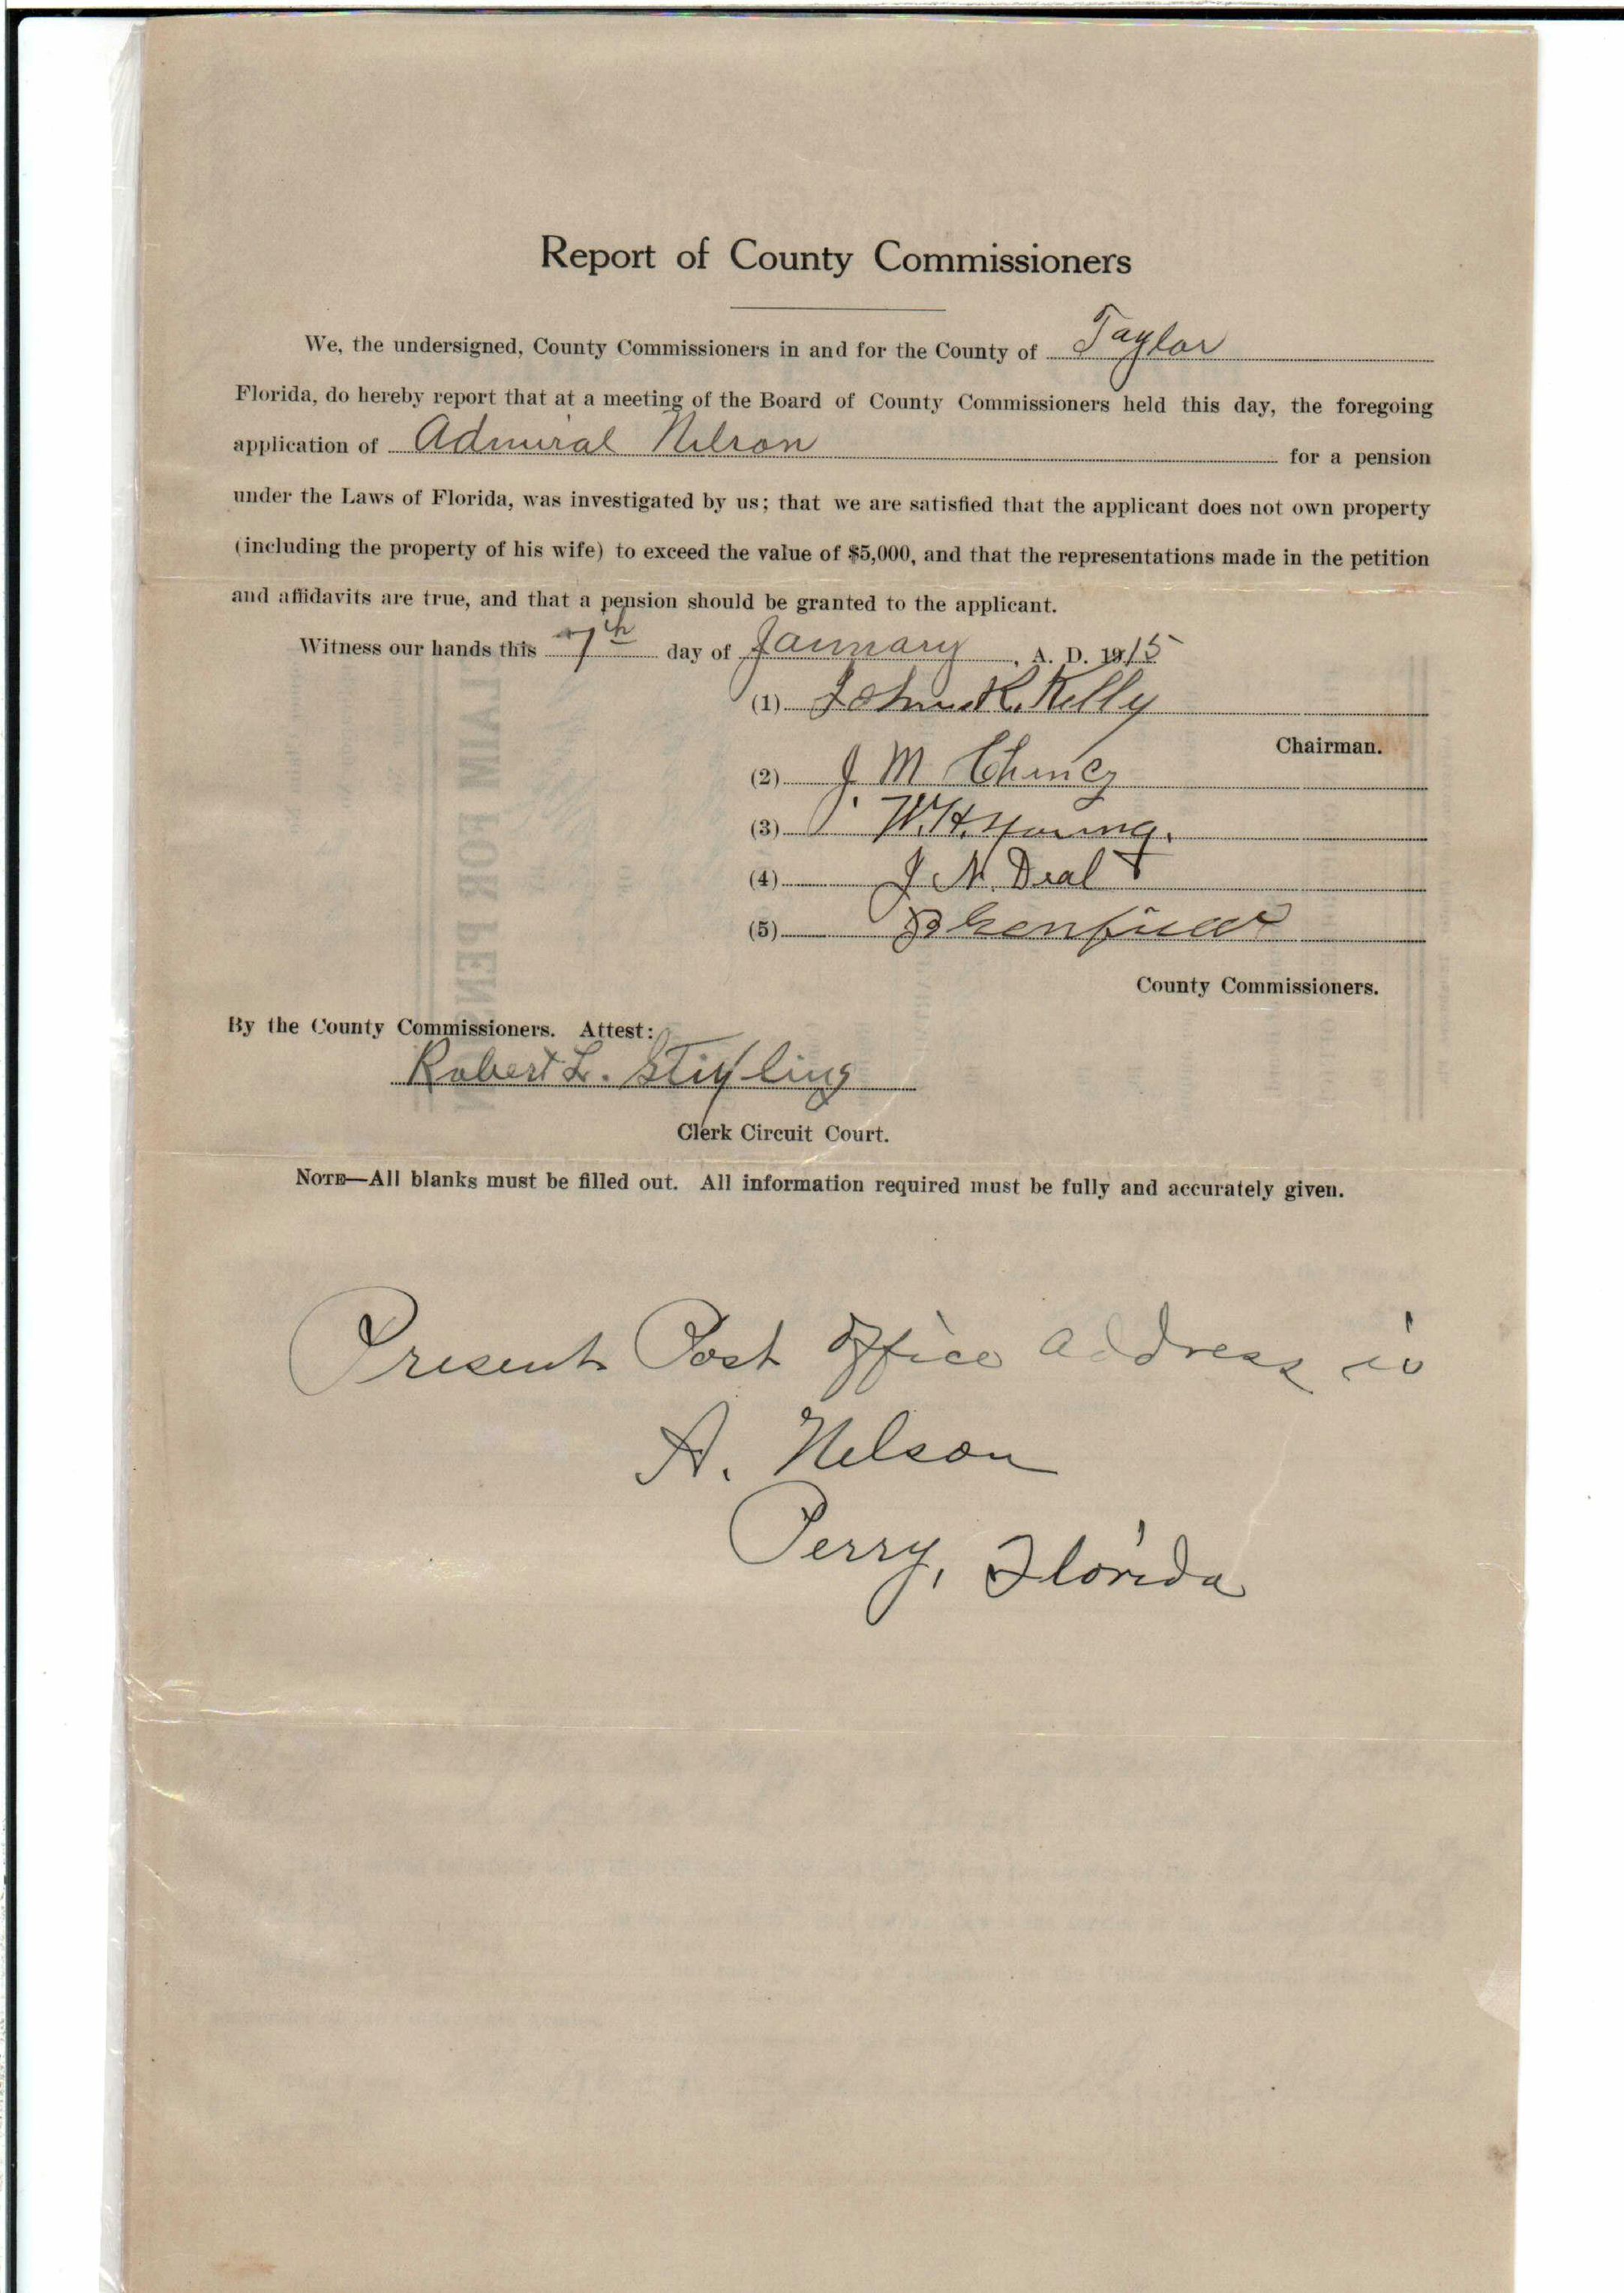 Report of County Commissioners
We, the undersigned, County Commissioners in and for the County of Taylor
Florida, do hereby report that at a meeting of the Board of County Commissioners held this day, the foregoing
application of Admiral Nelson for a pension
under the Laws of Florida, was investigated by us; that we are satisfied that the applicant does not own property
(including the property of his wife) to exceed the value of $5,000, and that the representations made in the petition
and affidavits are true, and that a pension should be granted to the applicant.
Witness our hands this 7th day of January, A. D. 1915
(1) Kelly
Chairman.
(2) J M
(3) W. H. Young.
(4) J N. Deal
(5)
County Commissioners.
By the County Commissioners. Attest:
Robert L.
Clerk Circuit Court.
NOTE—All blanks must be filled out. All information required must be fully and accurately given.
Present Post Office address is
A. Nelson
Perry, Florida